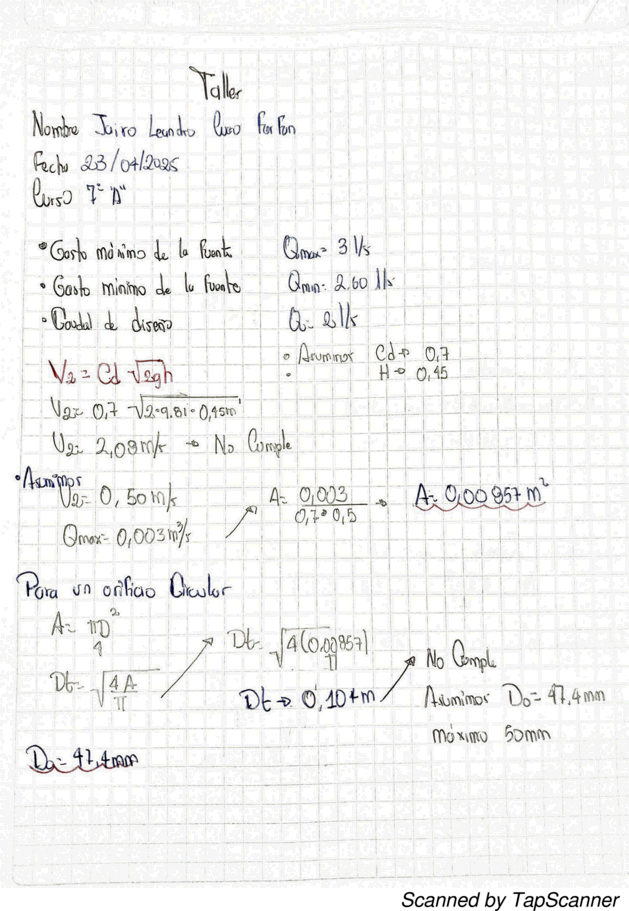 Taller
Nombre Jairo Leandro Curo Farfan
Fecha 23/04/2025
Curso 7º "A"
• Gasto máximo de la fuente Qmax= 3 l/s
• Gasto minimo de la fuente Qmin= 2.60 l/s
• Caudal de diseño Q= 2 l/s
• Asumimos Cd→ 0,7
• H→ 0,45
V2= Cd √2gh
V2= 0,7 √2*9.81*0,45m
V2= 2,08 m/s → No Cumple
• Asumimos
V2= 0,50 m/s A= 0,003 / 0,7*0,5 → A= 0,00857 m²
Qmax= 0,003 m³/s
Para un orificio Circular
A= πD² / 4 Dt= √4(0,00857) / π
Dt= √4A / π Dt→ 0,104m No Cumple
Asumimos Do= 47,4mm
máximo 50mm
Do= 47,4mm
Scanned by TapScanner